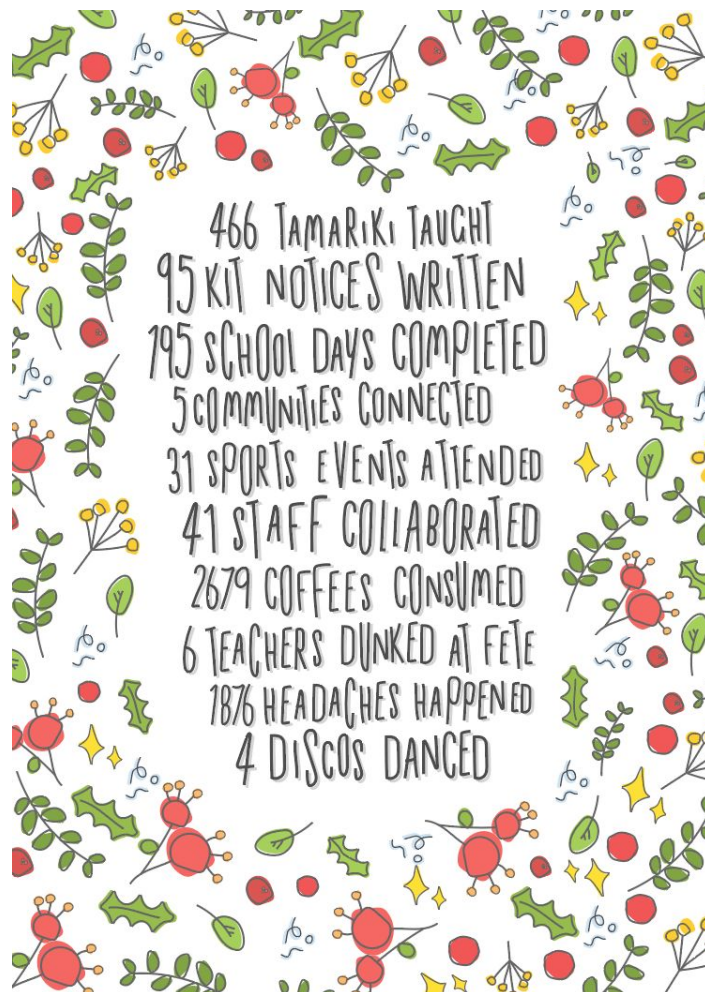 466 TAMARIKI TAUGHT
95 KIT NOTICES WRITTEN
195 SCHOOL DAYS COMPLETED
5 COMMUNITIES CONNECTED
31 SPORTS EVENTS ATTENDED
41 STAFF COLLABORATED
2679 COFFEES CONSUMED
6 TEACHERS DUNKED AT FETE
1876 HEADACHES HAPPENED
4 DISCOS DANCED